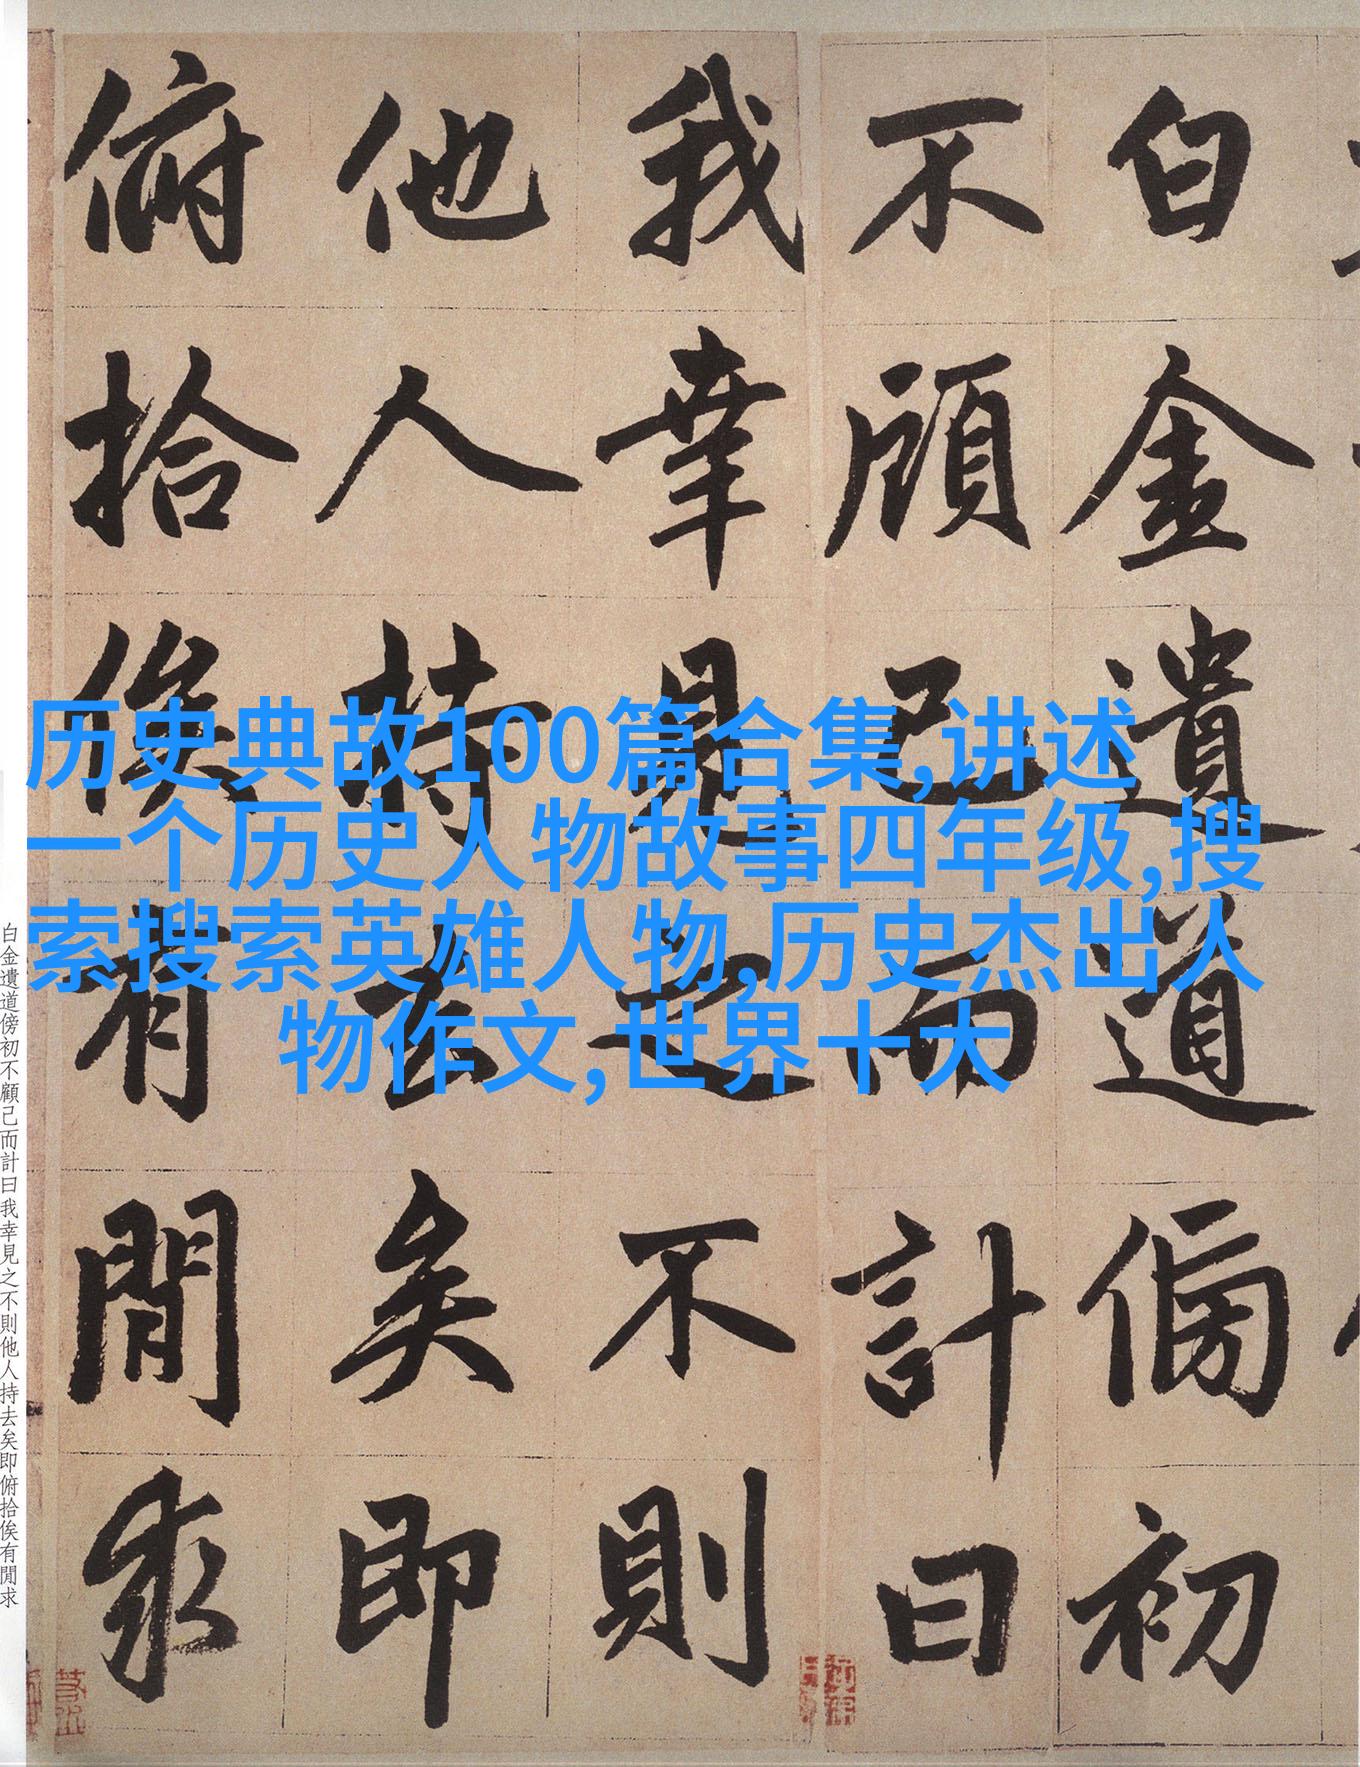 白金遺道傍初
不顧己而計曰
我幸見之不則
他人持去矣即
俯拾俟有閒求
历史典故100篇合集,讲述
一个历史人物故事四年级,搜
索搜索英雄人物,历史杰出人
物作文,世界十大
白金遺道傍初不顧己而計曰我幸見之不則他人持去矣即俯拾俟有閒求